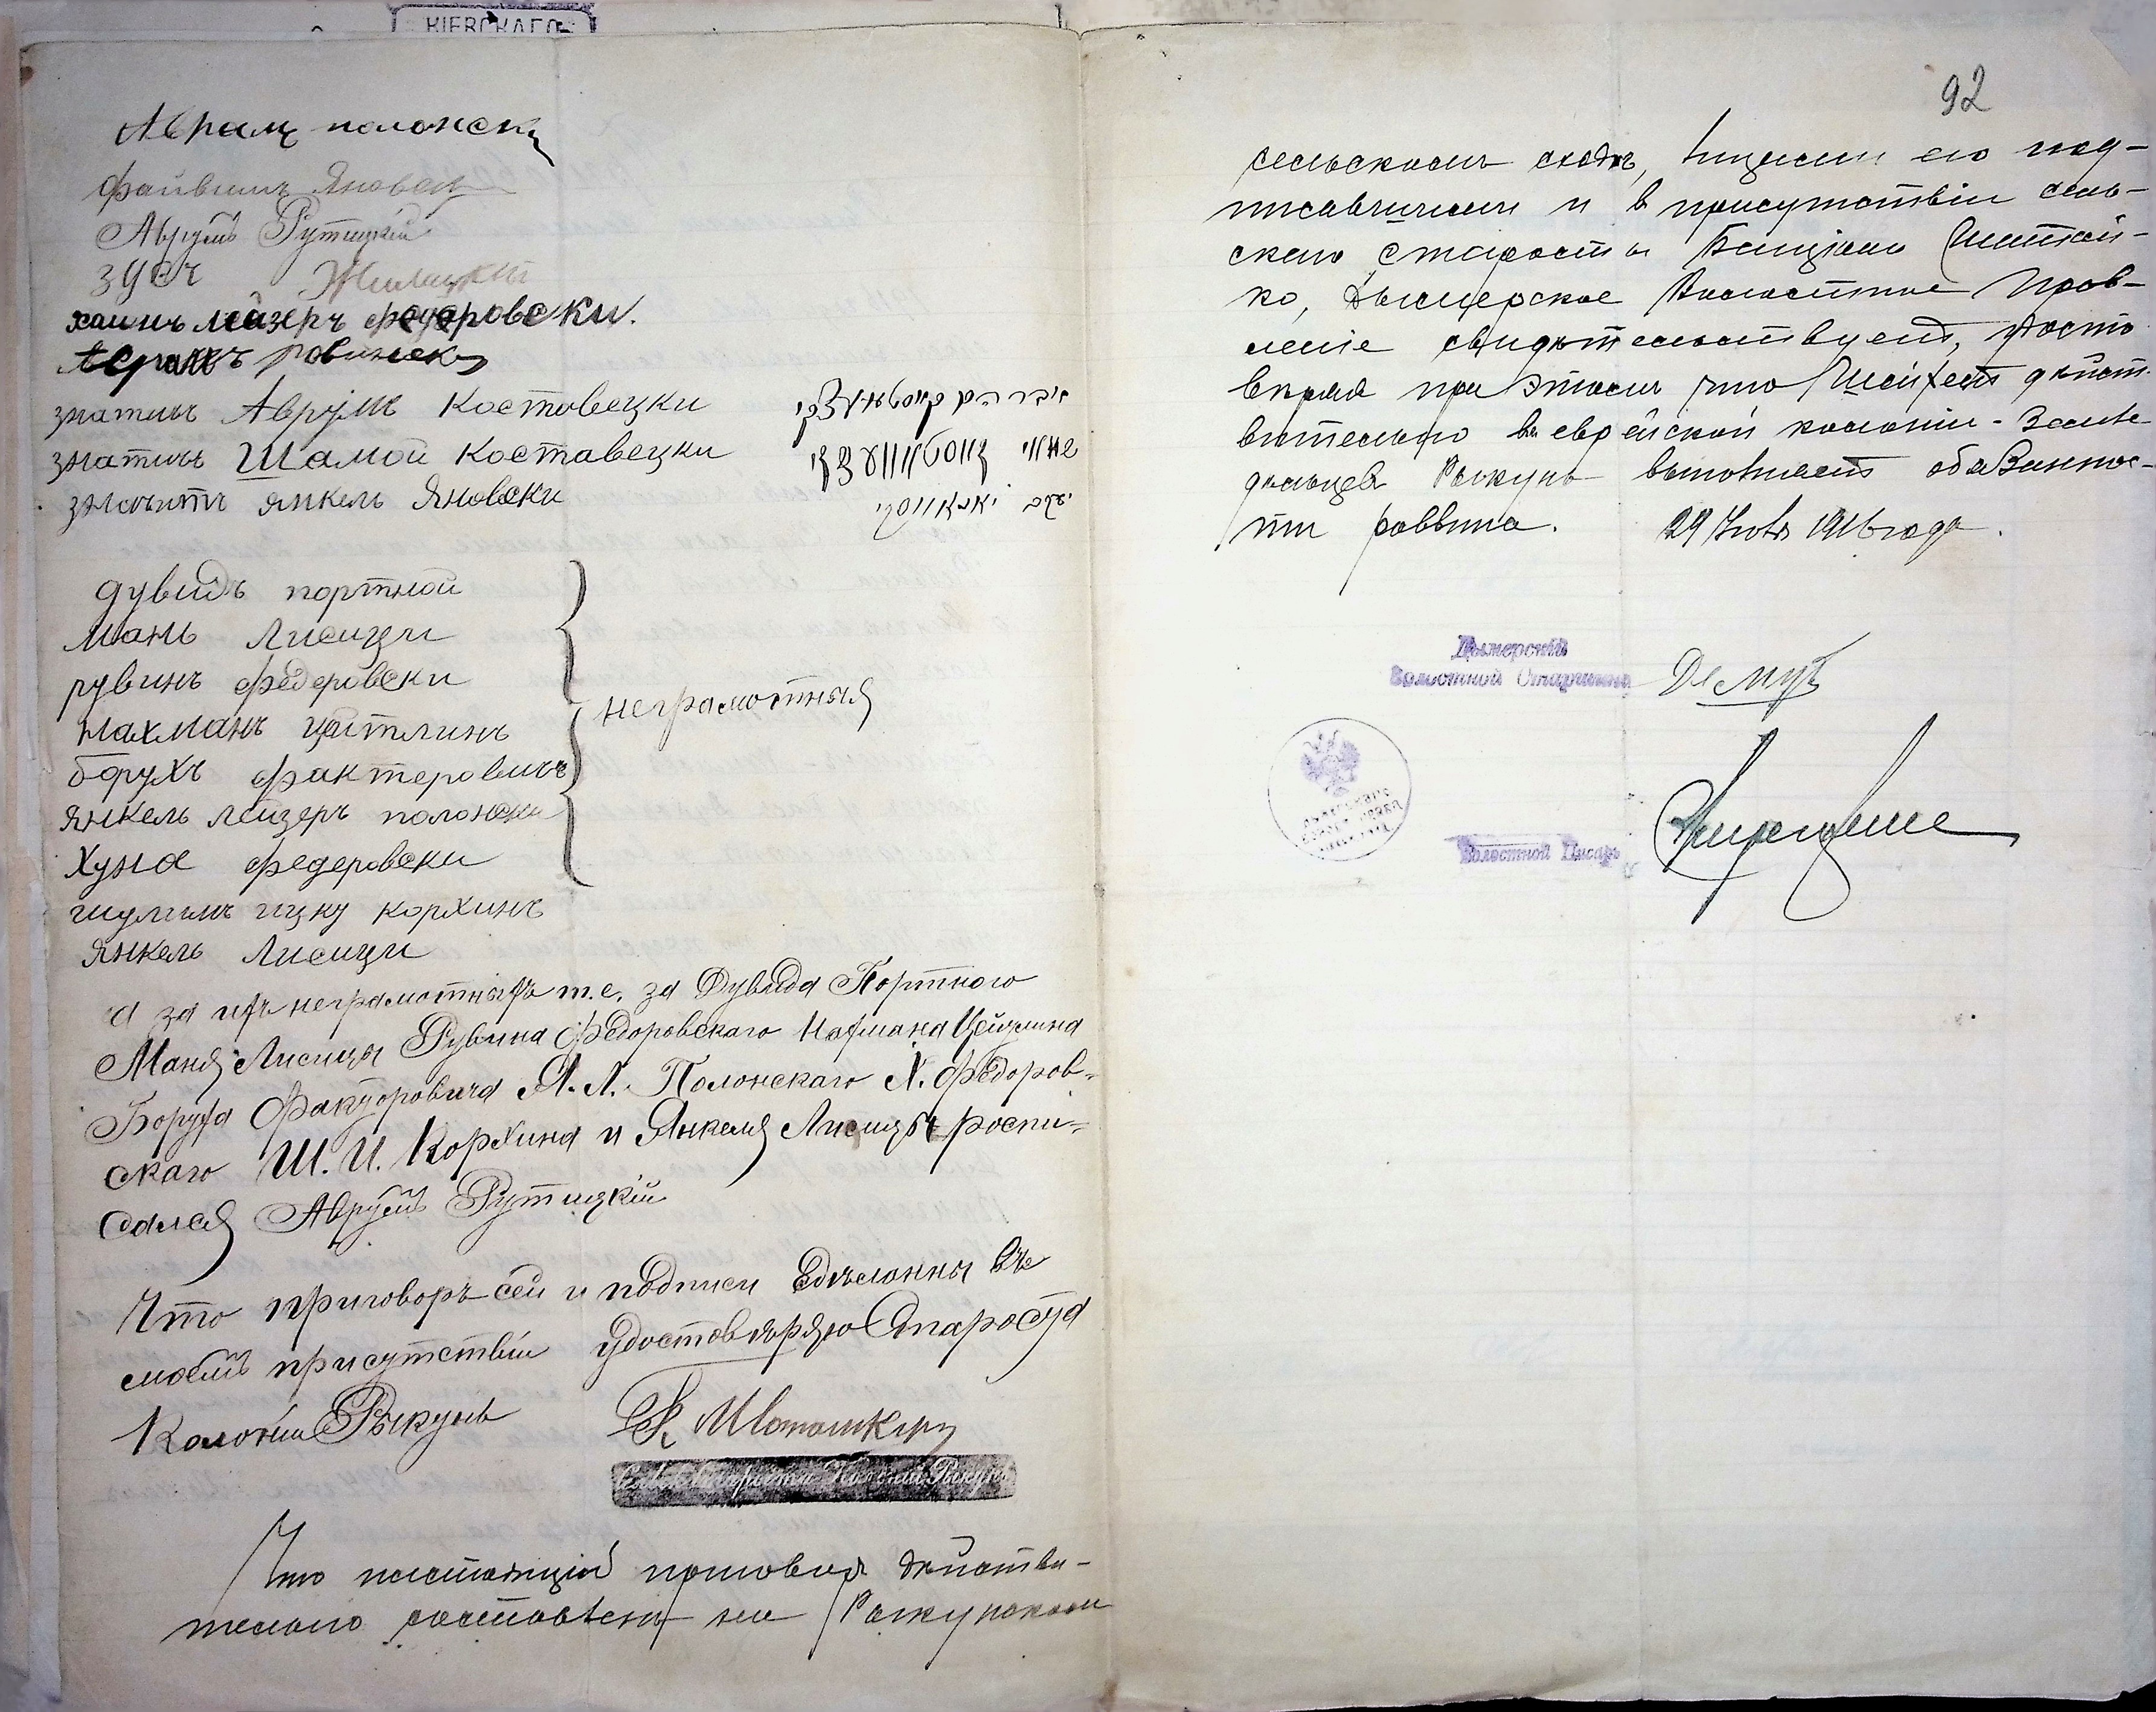 КІЕВСКАГО
Аврамъ полонски
Файвишъ Яновски
Аврумъ Рутицкій
зусь Жилицкій
хаимъ лейзеръ федеровски.
Аврамъ ровински
значитъ Аврумъ Костовецки
значитъ Шамой Коставецки
значитъ янкель Яновски
дувидъ портной
мань Лисици
рувинъ федеровски
нахманъ цейтлинъ
борухъ фактеровичъ
янкель лейзеръ полонски
хуна федеровски
неграмотныя
шулимъ ицку корхинъ
янкель Лисици
а за ихъ неграмотныхъ т.е. за Дувида Портного
Маня Лисицы Рувина Федоровскаго Нахмана Цейтлина
Боруха Факторовича Я. Л. Полонскаго Х. Федоров-
скаго Ш. И. Корхина и Янкеля Лисицы роспи-
сался Аврумъ Рутицкій
Что приговоръ сей и подписи сдѣланны въ
моемъ присутствіи удостовѣряю Староста
Колоніи Рыкунь
Что настоящій приговоръ дѣйстви-
тельно составленъ на Рыкунскомъ
92
сельскомъ сходѣ, лицами его под-
писавшими и в присутствіи сель-
скаго Старосты
ко, Дымерское Волостное Прав-
леніе свидѣтельствуетъ, удосто
вѣряя при этомъ что дѣйст
вительно въ еврейской колоніи - Земле
дѣльцевъ Рыкунь выполняетъ обязаннос-
ти раввина. 29 Іюля 1916 года.
Дымерскій
Волостной Старшина
Демуъ
Волостной Писарь